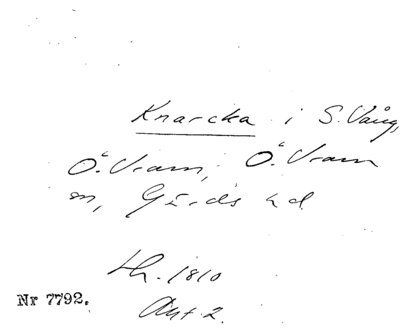 Knarcka i S. Vång,
Ö. Vram, Ö. Vram
sn, Gärds hd
Lh. 1810
Akt 2.
Nr 7792.